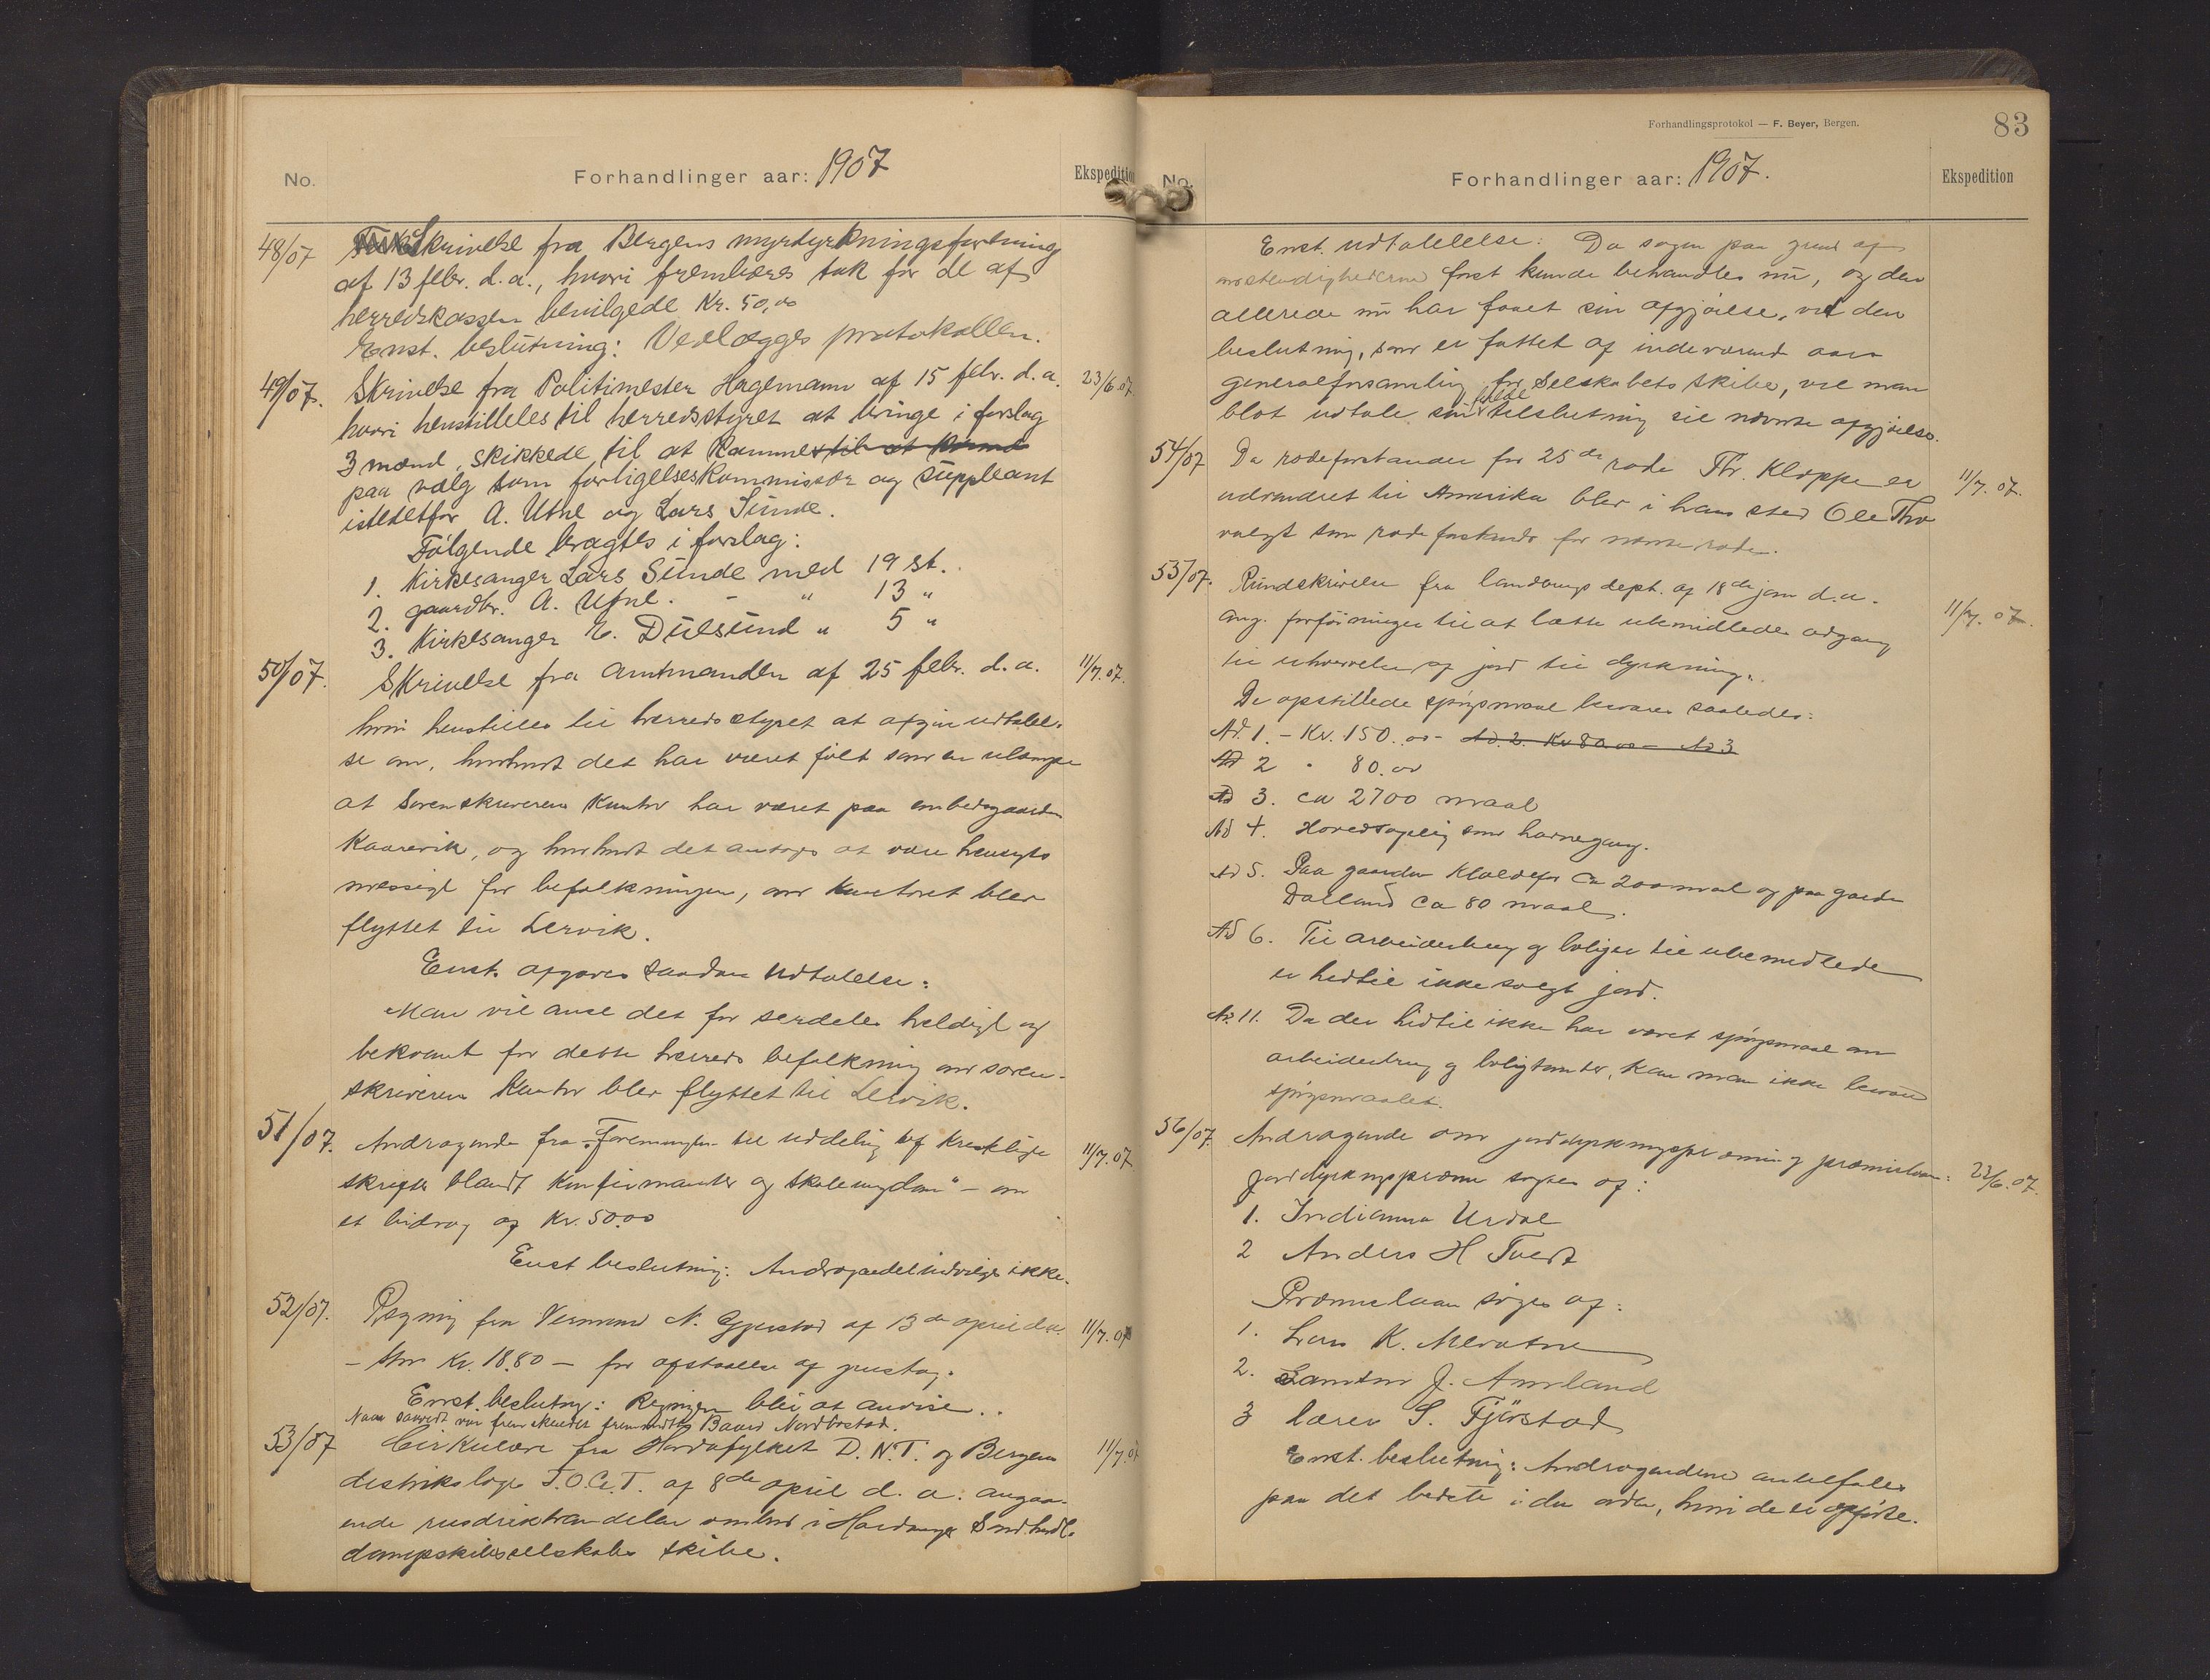 No. Forhandlinger aar: 1907 Ekspedition
48/07 Skrivelse fra Bergens myrdyrkningsforening
af 13 febr. d.a., hvori frembæres tak for de af
herredskassen bevilgede Kr. 50,00
Enst. beslutning: Vedlægges protokollen.
49/07. Skrivelse fra Politimester Hagemann af 15 febr. d.a. 23/6 07
hvori henstilles til herredsstyret at bringe i forslag
3 mænd, skikkede til at komme til at komme
paa valg som forligelseskommissær og suppleant
istedetfor A. Utne og Lars Sunde.
Følgende bragtes i forslag:
1. Kirkesanger Lars Sunde med 19 st.
2. gaardbr. A. Utne. - " 13 "
3. Kirkesanger E. Dulsund " 5 "
50/07. Skrivelse fra Amtmanden af 25 febr. d.a. 11/7.07.
hvori henstilles til herredsstyret at afgive udtalel-
se om, hvorvidt det har været følt som en ulempe
at Sorenskriverens Kontor har været paa embedsgaarden
Kaarevik, og hvorvidt det antages at være hensigts
mæssigt for befolkningen, om kontoret blev
flyttet til Lervik.
Enst. afgaves saadan udtalelse:
Man vil anse det for serdeles heldigt og
bekvemt for dette herreds befolkning om soren-
skriverens Kontor blev flyttet til Lervik.
51/07. Andragende fra "Foreningen til uddeling af Kristelige 11/7.07
skrifter blandt Konfirmanter og skoleungdom" – om
et bidrag af Kr. 50.00
Enst beslutning: Andragendet indvilges ikke.
52/07. Regning fra Lensmand N. Gjerstad af 13de april d.a. 11/7.07
– stor Kr. 18.80 – for afstaaelse af
Enst. beslutng: Regningen blir at anvise..
Naar saavidt var fremskredet fremmødte Baard Nordbøstad.
53/07 Cirkulære fra Hordafylket D.N.T. og Bergens 11/7.07
distriktsloge I.O.G.T. af 8de april d.a. angaa-
ende rusdrikhandelen ombord i Hardanger Søndhordl.
dampskibsselskabs skibe.
Forhandlingsprotokol — F. Beyer, Bergen. 83
No. Forhandlinger aar: 1907. Ekspedition
Enst. udtalelse: Da sagen paa grund af
omstendighederne først kunde behandles nu, og den
allerede nu har faaet sin afgjørelse, ved den
beslutning, som er fattet af indeværende aars
generalforsamling for Selskabets skibe, vil man
blot udtale sin fulde tilslutning til nævnte afgjørelse.
54/07 Da rodeforstander for 25de rode Thr. Kloppe er 11/7. 07.
udvandret til Amerika blev i hans sted Ole
valgt som rodeforstander for nævnte rode.
55/07. Rundskrivelse fra landbrugsdept. af 18de jan d.a. 11/7. 07.
ang. forføininger til at lette ubemidledes adgang
til erhvervelse af jord til dyrkning.
De opstillede spørgsmaal besvares saaledes:
Ad. 1. – Kr. 150.00 – Ad. 2. Kr 80.00 – Ad 3
Ad 2 " 80.00
Ad 3. ca 2700 maal
Ad 4. Hovedsagelig som havnegang.
Ad 5. Paa gaarden ca 200 maal og paa gaarden
Dalland ca 80 maal.
Ad 6. Til arbeiderbrug og boliger til ubemidlede
er hidtil ikke solgt jord.
Ad. 11. Da der hidtil ikke har været spørgsmaal om
arbeiderbrug og boligtomter, kan man ikke besvare
spørgsmaalet.
56/07. Andragende om jorddyrkningspræmie og præmielaan: 22/6.07.
Jorddyrkningspræmie søges af:
1. Indianna Urdal
2 Anders H Tvedt
Præmielaan søges af:
1. Lars K. Mevatne
2. J. Amland
3 Lærer S. Fjørstad
Enst. beslutning: Andragenderne anbefales
paa det bedste i den orden, hvori de er opførte.